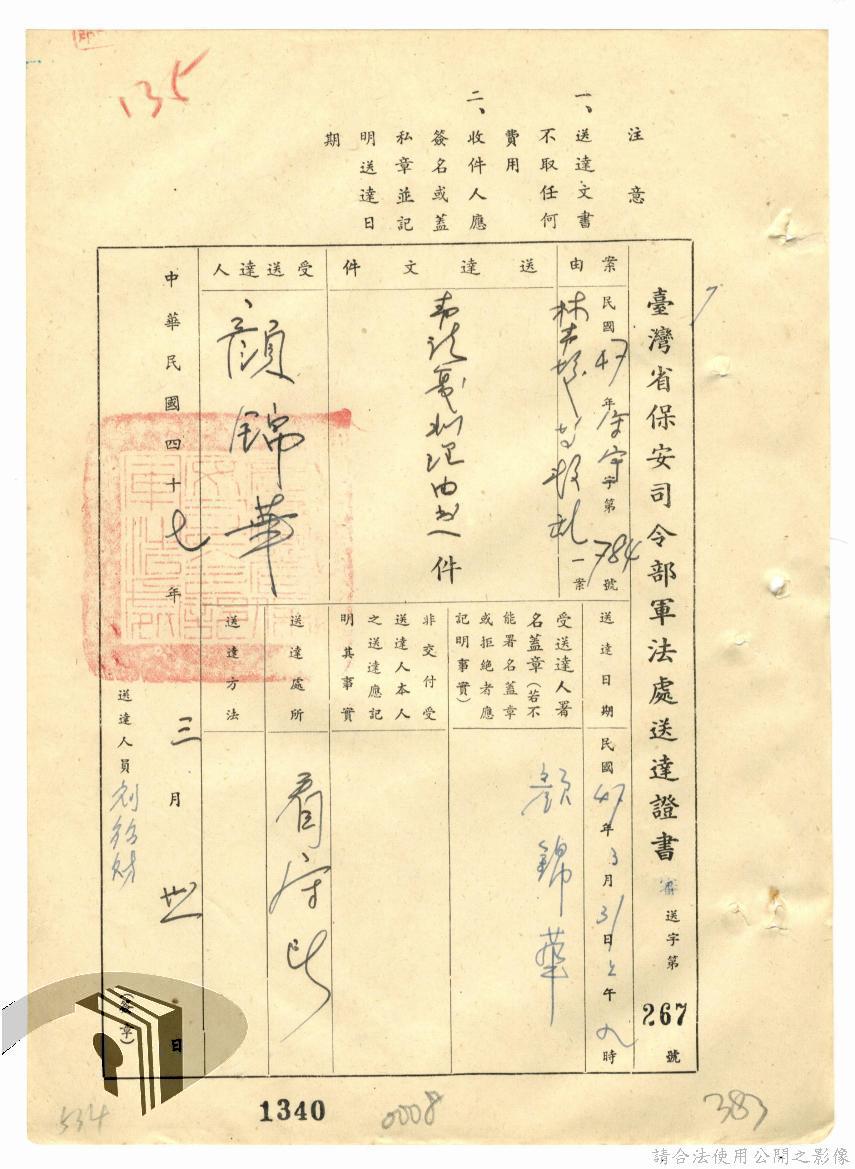 135
注意
一、送達文書
不取任何
費用
二、收件人應
簽名或蓋
私章並記
明送達日
期
臺灣省保安司令部軍法處送達證書
審送字第267號
案由
民國47年 字第784號
一案
送達文件
一件
受送達人
顏錦華
送達日期
民國47年3月31日上午九時
受送達人署
名蓋章(若不
能署名蓋章
或拒絕者應
記明事實)
顏錦華
非交付受
送達人本人
之送達應記
明其事實
送達處所
看守所
送達方法
中華民國四十七年三月卅一日
送達人員
(簽章)
534
1340
0008
383
請合法使用公開之影像